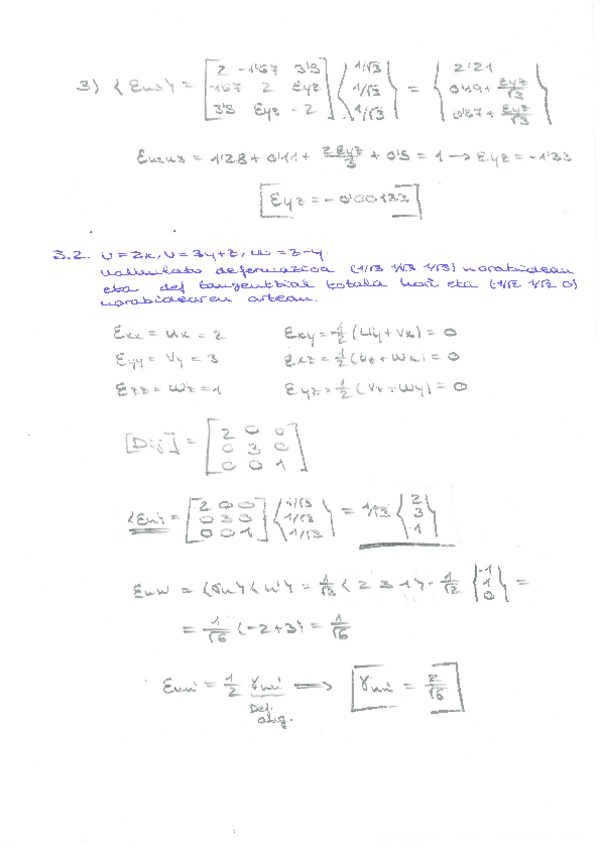 3) {εn3} = [2 -1'67 3'5; -1'67 2 εyz; 3'5 εyz -2] {1/√3; 1/√3; 1/√3} = {2'21; 0'19 + εyz/√3; 0'87 + εyz/√3}
εn3n3 = 1'28 + 0'11 + 2εyz/3 + 0'5 = 1 → εyz = -1'33
εyz = -0'00133
3.2. u = 2x, v = 3y+z, w = z-y.
deformazioa (1/√3 1/√3 1/√3) norabidean
eta def tangentzial totala hori eta (-1/√2 1/√2 0)
norabidearen artean.
εxx = ux = 2 εxy = 1/2 (uy + vx) = 0
εyy = vy = 3 εxz = 1/2 (uz + wx) = 0
εzz = wz = 1 εyz = 1/2 (vz + wy) = 0
[Dij] = [2 0 0; 0 3 0; 0 0 1]
{εn} = [2 0 0; 0 3 0; 0 0 1] {1/√3; 1/√3; 1/√3} = 1/√3 {2; 3; 1}
εnn' = {σn}{n'} = 1/√3 {2 3 1} · 1/√2 {-1; 1; 0} =
= 1/√6 (-2+3) = 1/√6
εnn' = 1/2 γnn' → γnn' = 2/√6
Def.
ang.